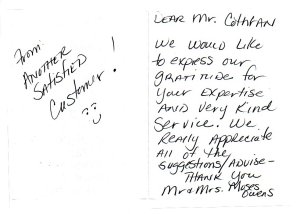 From:
ANOTHER
SATISFIED
Customer!
DEAR Mr. COTHRAN
WE WOULD LIKE
to express our
GRATITUDE for
Your EXPERTISE
AND VERY KIND
SERVICE. WE
REALLY APPRECIATE
All of the
SUGGESTIONS/ADVISE-
THANK YOU
Mr & Mrs. Moses
Owens